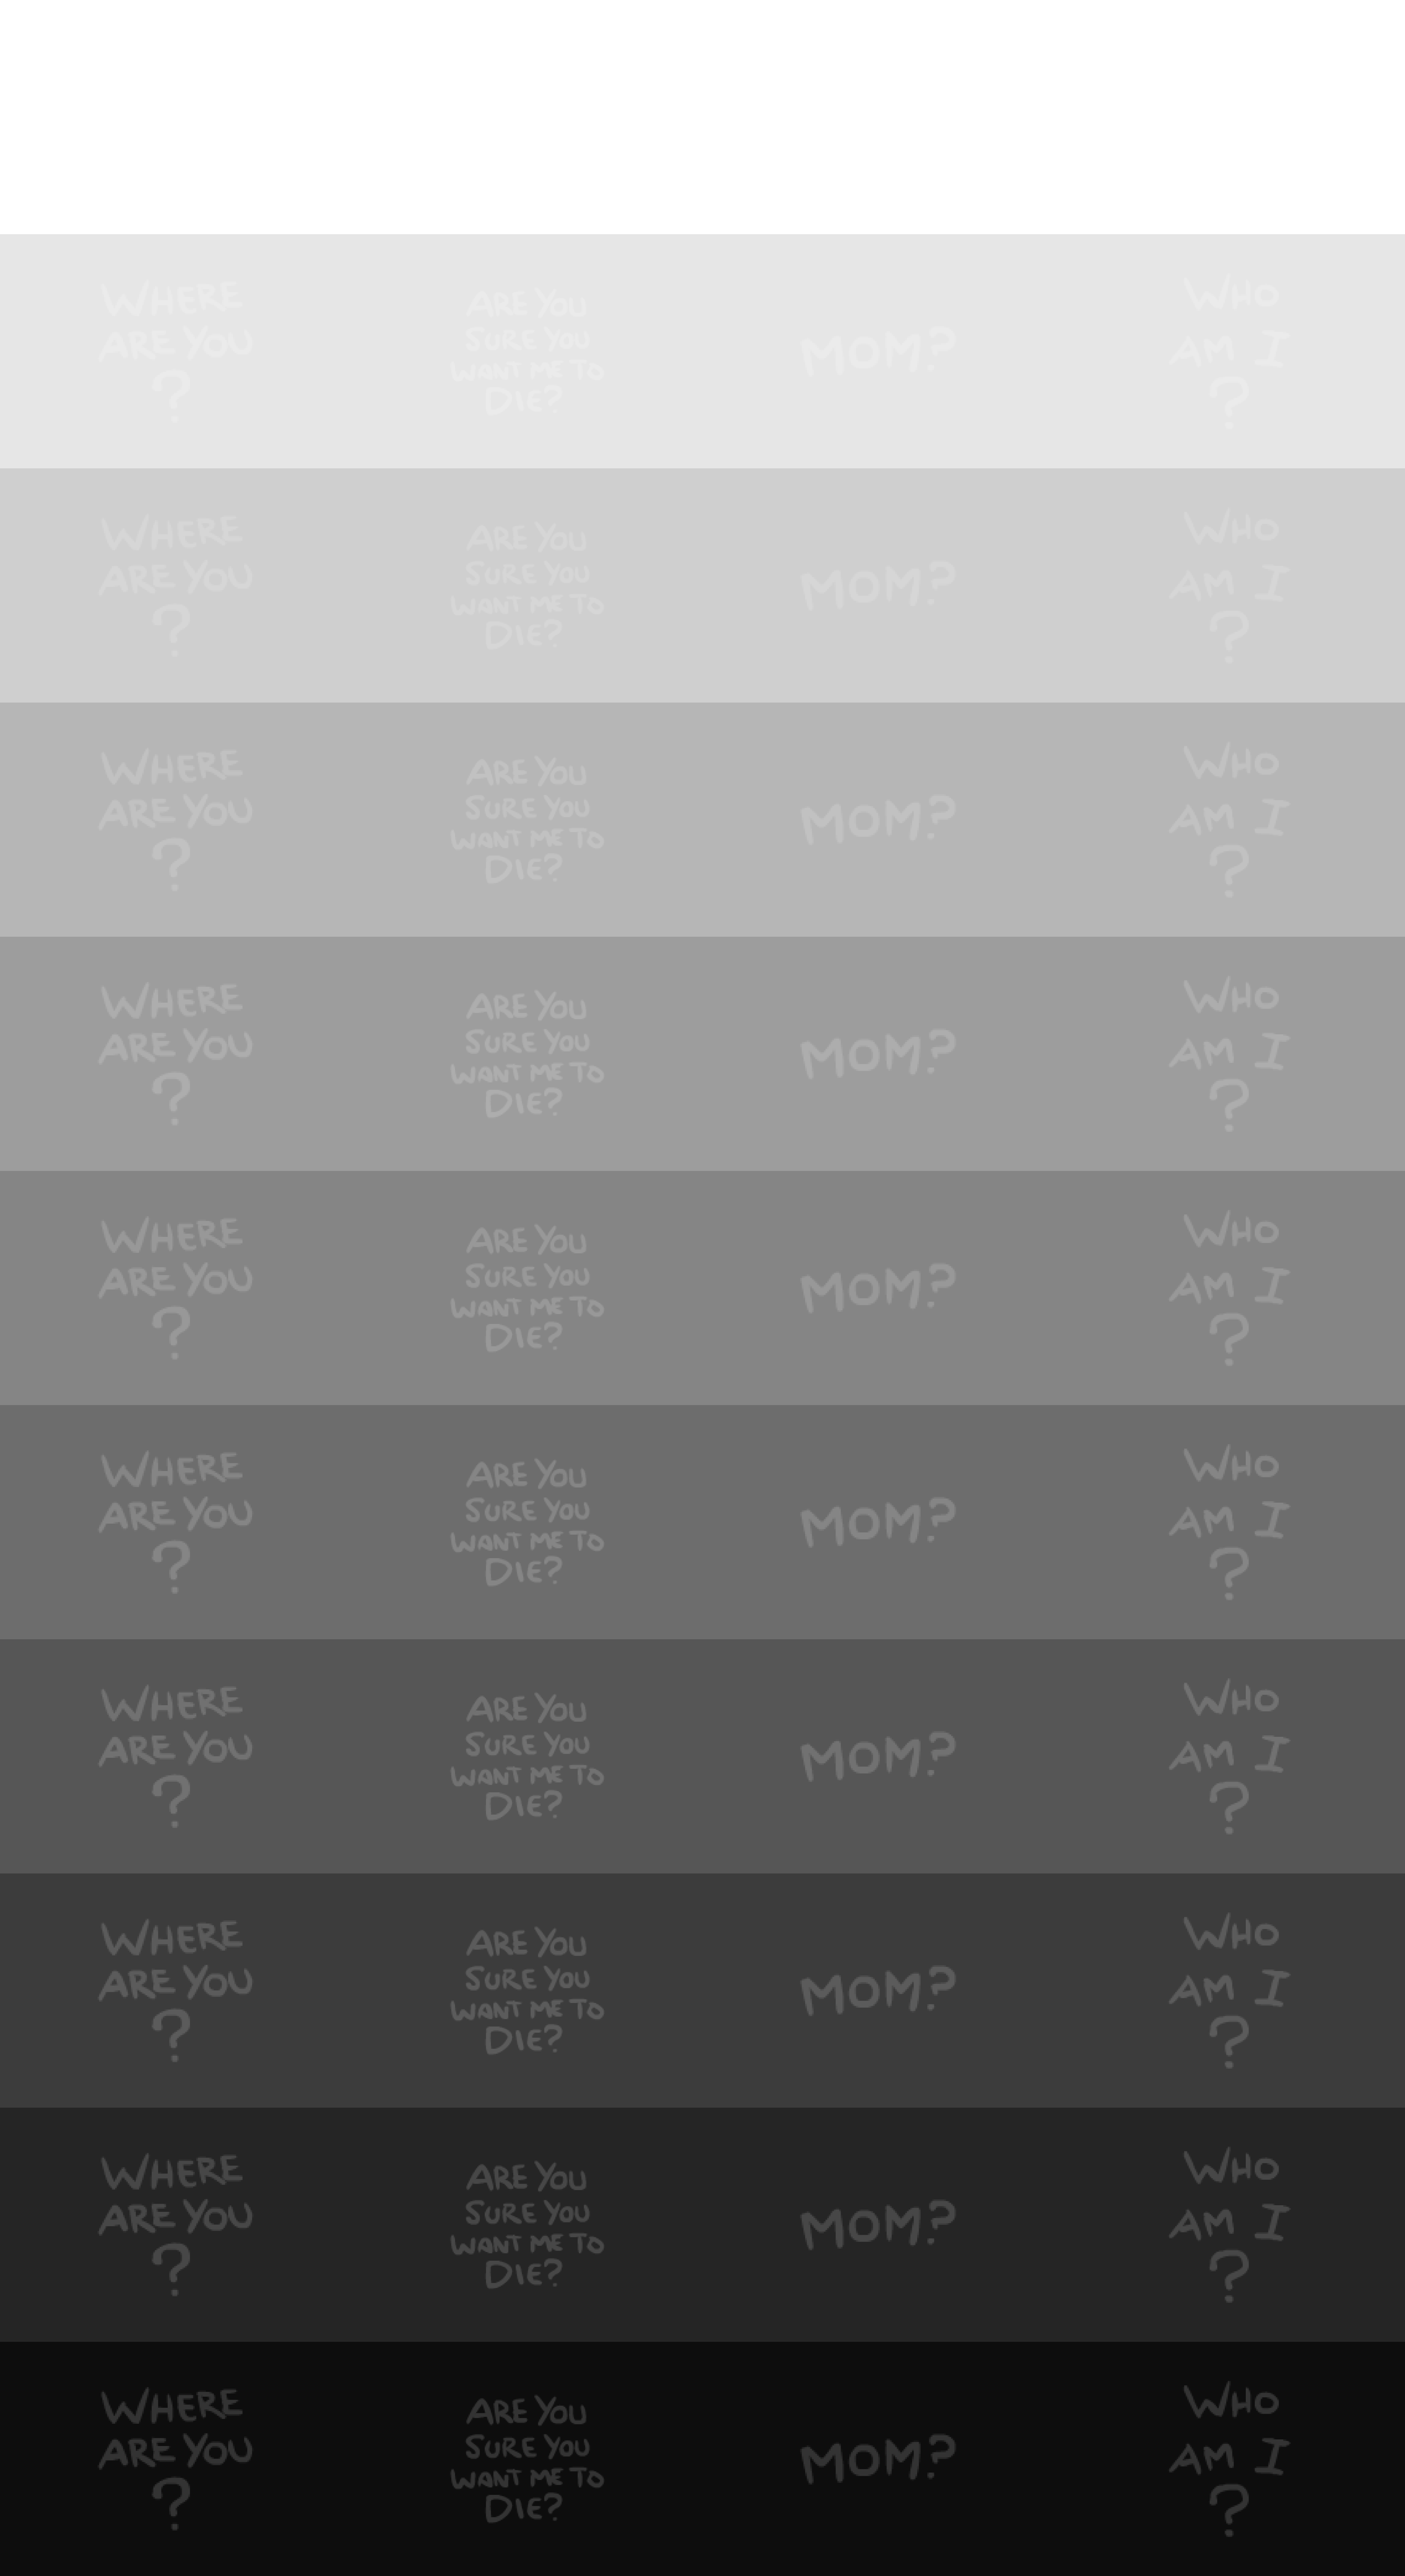 WHERE
ARE YOU
?
ARE YOU
SURE YOU
WANT ME TO
DIE?
MOM?
WHO
AM I
?
WHERE
ARE YOU
?
ARE YOU
SURE YOU
WANT ME TO
DIE?
MOM?
WHO
AM I
?
WHERE
ARE YOU
?
ARE YOU
SURE YOU
WANT ME TO
DIE?
MOM?
WHO
AM I
?
WHERE
ARE YOU
?
ARE YOU
SURE YOU
WANT ME TO
DIE?
MOM?
WHO
AM I
?
WHERE
ARE YOU
?
ARE YOU
SURE YOU
WANT ME TO
DIE?
MOM?
WHO
AM I
?
WHERE
ARE YOU
?
ARE YOU
SURE YOU
WANT ME TO
DIE?
MOM?
WHO
AM I
?
WHERE
ARE YOU
?
ARE YOU
SURE YOU
WANT ME TO
DIE?
MOM?
WHO
AM I
?
WHERE
ARE YOU
?
ARE YOU
SURE YOU
WANT ME TO
DIE?
MOM?
WHO
AM I
?
WHERE
ARE YOU
?
ARE YOU
SURE YOU
WANT ME TO
DIE?
MOM?
WHO
AM I
?
WHERE
ARE YOU
?
ARE YOU
SURE YOU
WANT ME TO
DIE?
MOM?
WHO
AM I
?